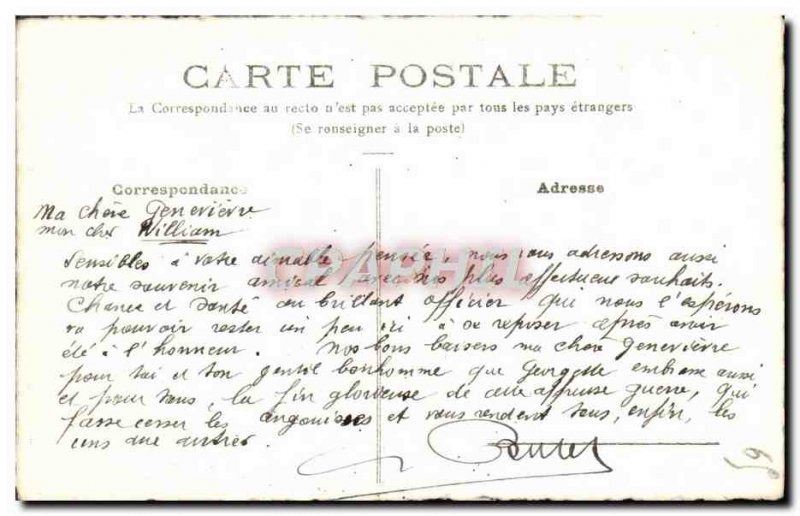 CARTE POSTALE
La Correspondance au recto n'est pas acceptée par tous les pays étrangers
(Se renseigner à la poste)
Correspondance
Adresse
Ma chère Geneviève
mon cher William
Sensibles à votre aimable pensée, nous vous adressons aussi
notre souvenir amical avec nos plus affectueux souhaits.
Chance et Santé au brillant officier que nous l'espérons
va pouvoir rester un peu ici à se reposer après avoir
été à l'honneur. Nos bons baisers ma chère Geneviève
pour toi et ton gentil bonhomme que Georgette embrasse aussi
et pour tous, la fin glorieuse de cette affreuse guerre, qui
fasse cesser les angoisses et vous rendent tous, enfin, les
uns aux autres.